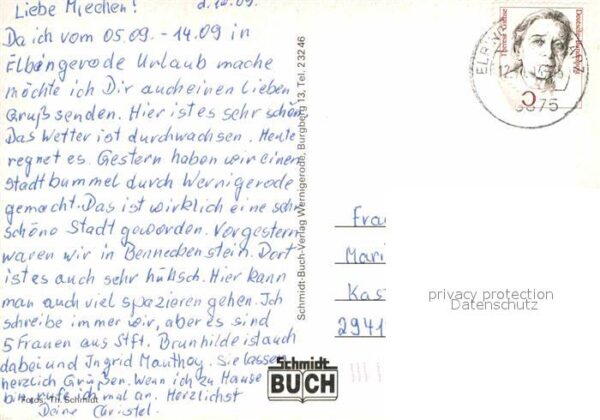 Liebe Miechen! d. 12.09.
Da ich vom 05.09. - 14.09 in
Elbingerode Urlaub mache
möchte ich Dir auch einen lieben
Gruß senden. Hier ist es sehr schön
Das Wetter ist durchwachsen. Heute
regnet es. Gestern haben wir einen
Stadtbummel durch Wernigerode
gemacht. Das ist wirklich eine sehr
schöne Stadt geworden. Vorgestern
waren wir in Benneckenstein. Dort
ist es auch sehr hübsch. Hier kann
man auch viel spazieren gehen. Ich
schreibe immer wir, aber es sind
5 Frauen aus Stft. Brunhilde ist auch
dabei und Ingrid Manthey. Sie lassen
herzlich Grüßen. Wenn ich zu Hause
bin rufe ich mal an. Herzlichst
Deine Christel.
Fotos: Th. Schmidt
Schmidt-Buch-Verlag Wernigerode, Burgberg 13, Tel. 23246
Schmidt
BUCH
Therese Giehse
Deutsche Bundespost
Frau
Mari
Kas
2941
privacy protection
Datenschutz